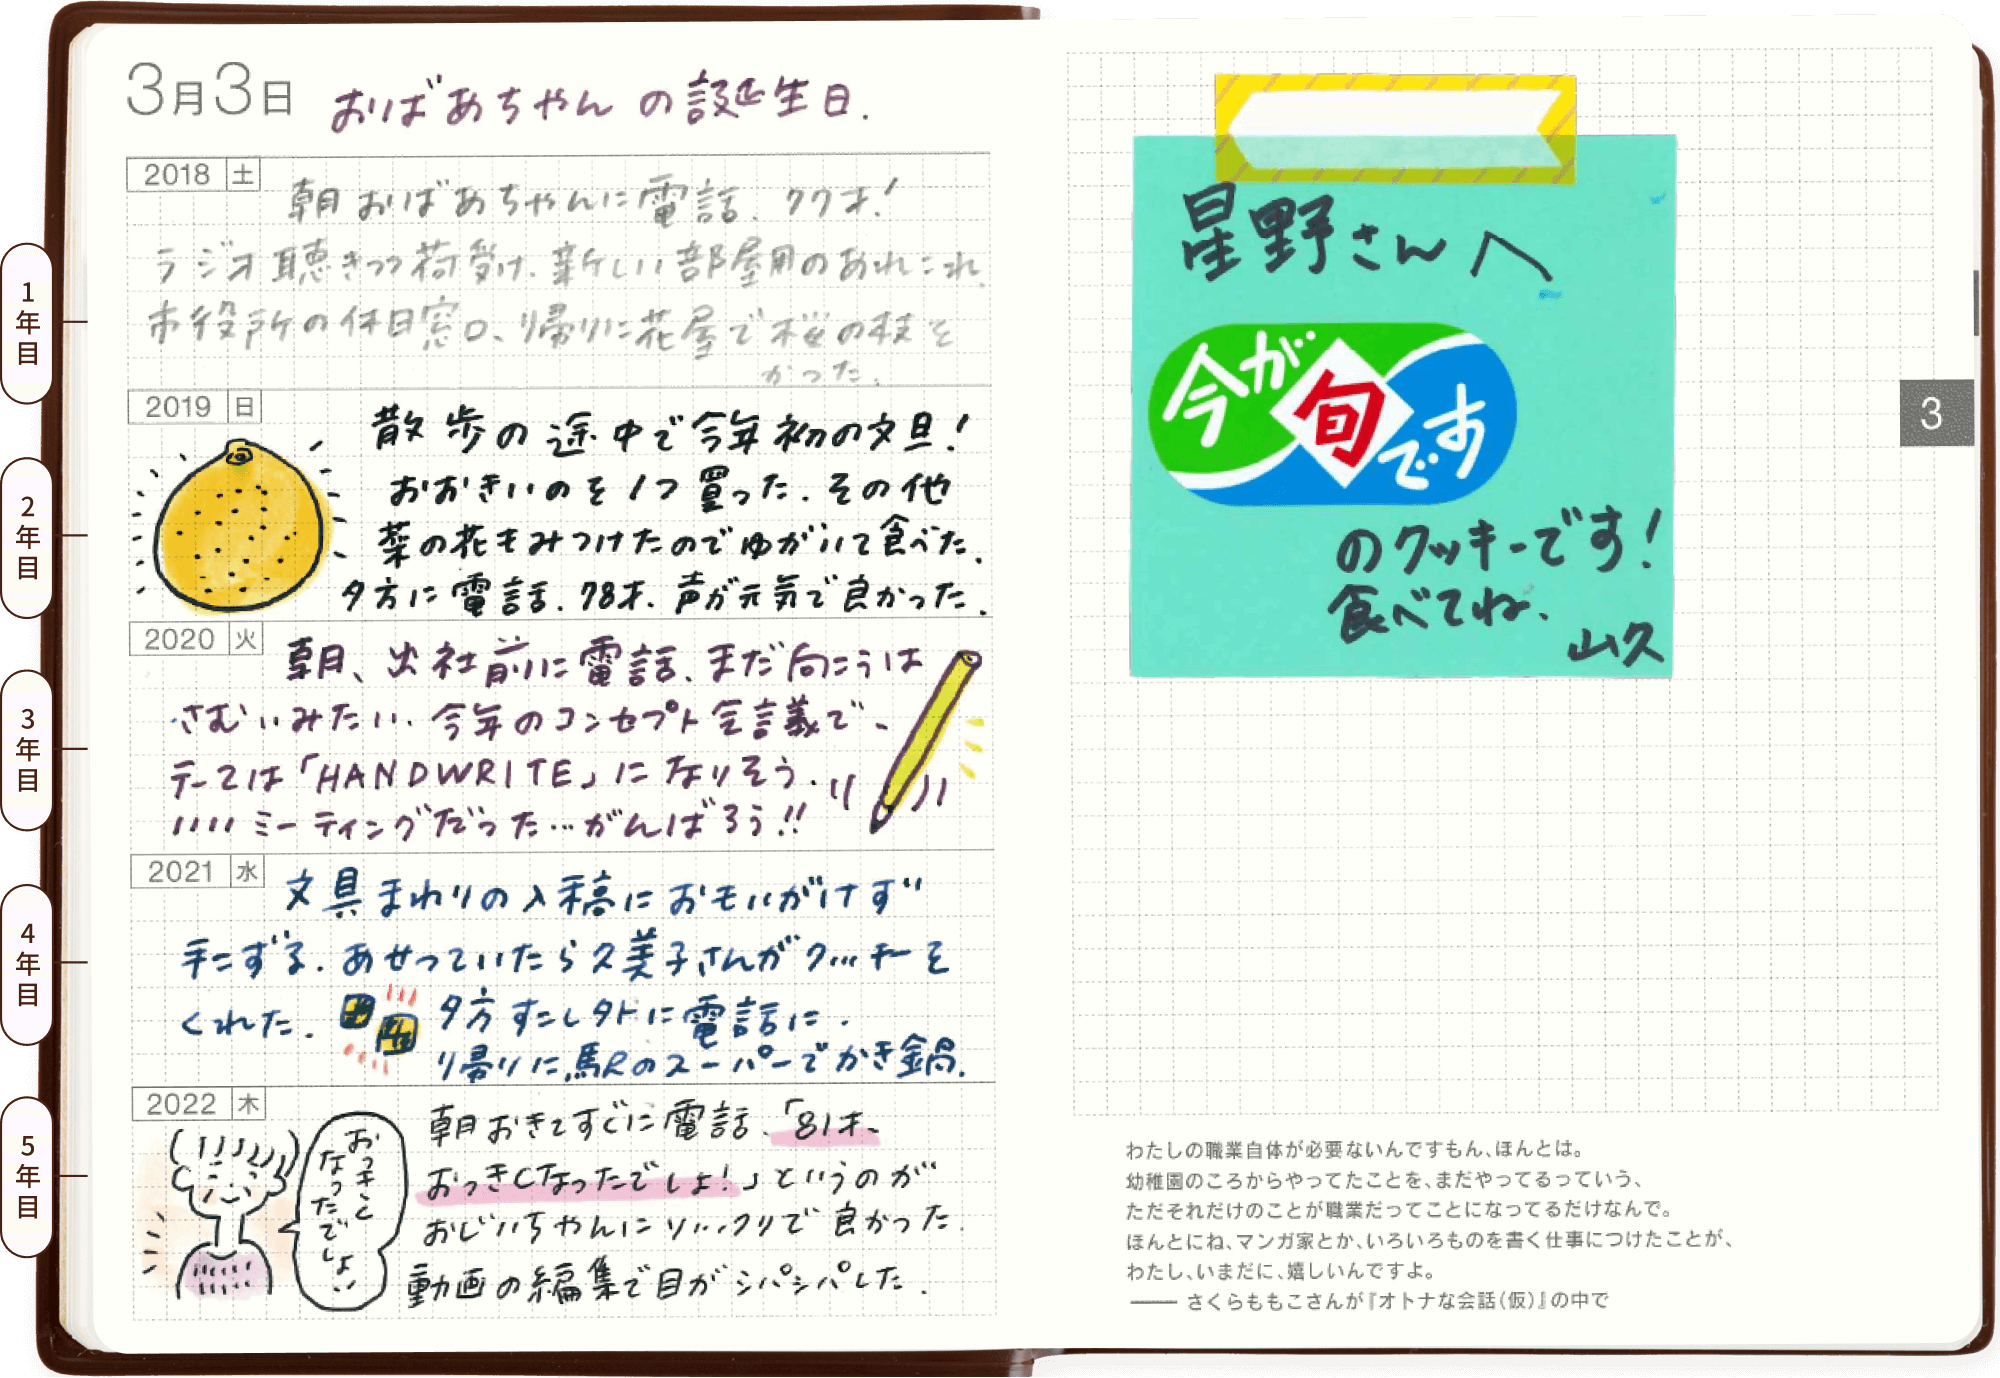 3月3日 おばあちゃんの誕生日.
2018 土
朝おばあちゃんに電話. 77才!
ラジオ聴きつつ荷受け. 新しい部屋用のあれこれ.
市役所の休日窓口、帰りに花屋で桜の枝を
かった.
2019 日
散歩の途中で今年初の文旦!
おおきいのを1つ買った. その他
菜の花もみつけたのでゆがいて食べた.
夕方に電話. 78才. 声が元気で良かった.
2020 火
朝、出社前に電話. まだ向こうは
さむいみたい. 今年のコンセプト会議で、
テーマは「HANDWRITE」になりそう.
いいミーティングだった…がんばろう!!
2021 水
文具まわりの入稿におもいがけず
手こずる. あせっていたら久美子さんがクッキーを
くれた.
夕方すこし外に電話に.
帰りに駅のスーパーでかき鍋.
2022 木
おっきくなったでしょ!
朝おきてすぐに電話.「81才、
おっきくなったでしょ!」というのが
おじいちゃんにソックリで良かった.
動画の編集で目がシパシパした.
1年目
2年目
3年目
4年目
5年目
星野さんへ
今が旬です
のクッキーです!
食べてね、
山久
3
わたしの職業自体が必要ないんですもん、ほんとは。
幼稚園のころからやってたことを、まだやってるっていう、
ただそれだけのことが職業だってことになってるだけなんで。
ほんとにね、マンガ家とか、いろいろものを書く仕事につけたことが、
わたし、いまだに、嬉しいんですよ。
―― さくらももこさんが『オトナな会話(仮)』の中で